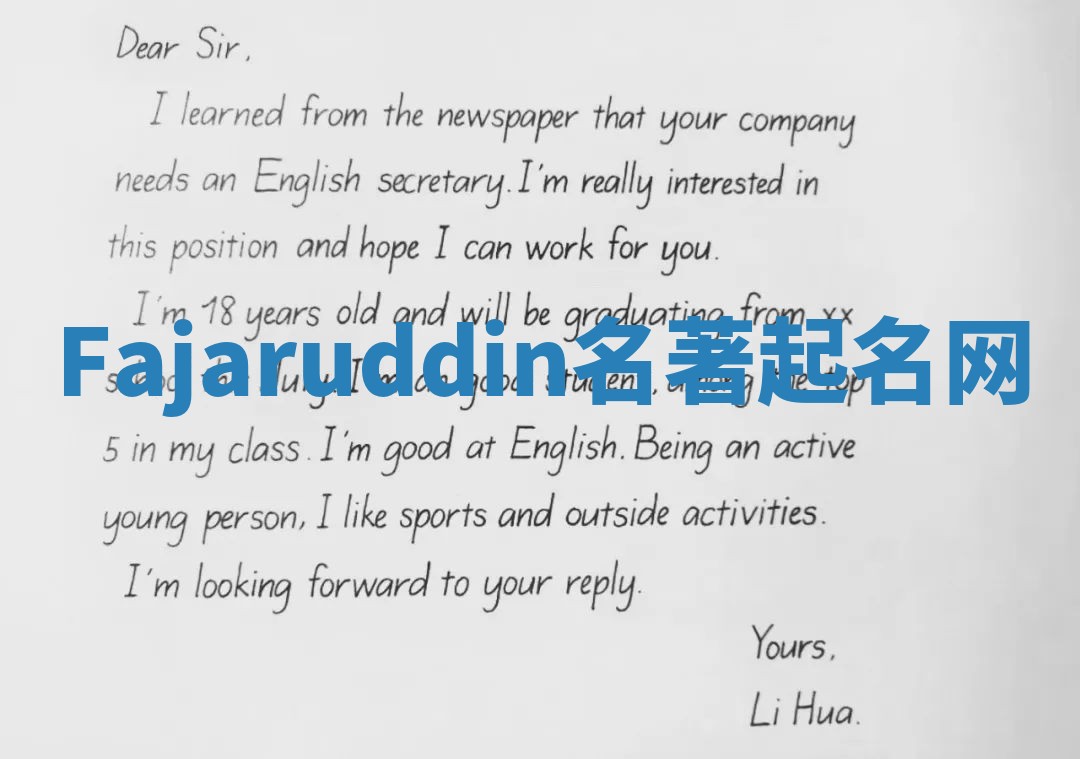 Dear Sir,
I learned from the newspaper that your company
needs an English secretary. I'm really interested in
this position and hope I can work for you.
I'm 18 years old and will be graduating from xx
Fajaruddin名著起名网
July. I'm an good student, among the top
5 in my class. I'm good at English. Being an active
young person, I like sports and outside activities.
I'm looking forward to your reply.
Yours,
Li Hua.